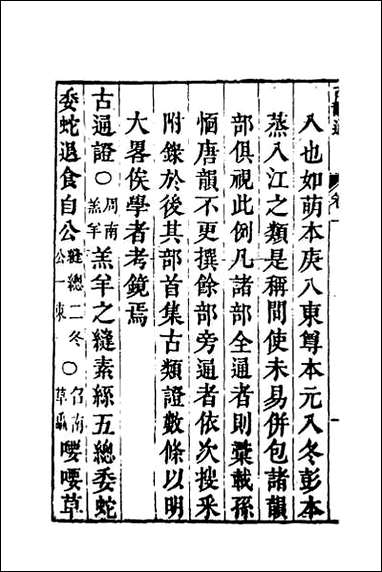 入也如萌本庚入東尊本元入冬彭本
蒸入江之類是稱間使未易併包諸韻
部俱視此例凡諸部全通者則彙載孫
愐唐韻不更撰餘部旁通者依次搜釆
附錄於後其部首集古類證數條以明
大畧俟學者考鏡焉
古通證○周南羔羊羔羊之縫素絲五總委蛇
委蛇退食自公縫總二冬公一東○召南草蟲喓喓草